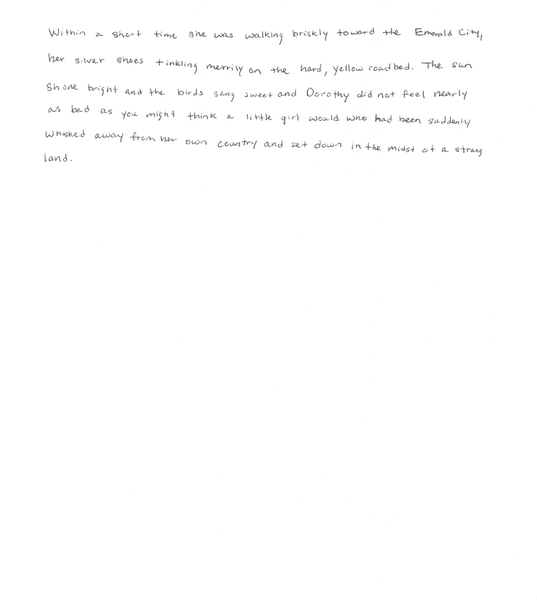 Within a short time she was walking briskly toward the Emerald City,
her silver shoes tinkling merrily on the hard, yellow roadbed. The sun
shone bright and the birds sang sweet and Dorothy did not feel nearly
as bad as you might think a little girl would who had been suddenly
whisked away from her own country and set down in the midst of a strang
land.